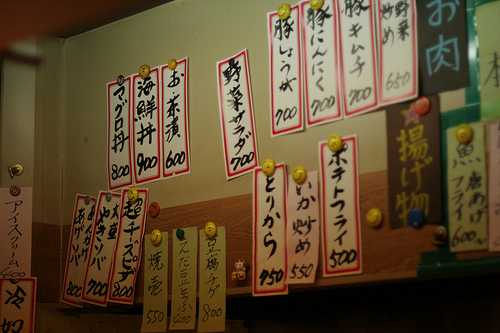 マグロ丼
800
海鮮丼
900
お茶漬
600
野菜サラダ
700
豚しょうが
700
豚にんにく
700
豚キムチ
700
野菜炒め
650
お肉
とりから
750
いか炒め
550
ポテトフライ
500
揚げ物
魚フライ
唐あげ
600~
800
700
超チーズピザ
800
焼売
550
400
豆腐チゲ
800
アイスクリーム
400
冷